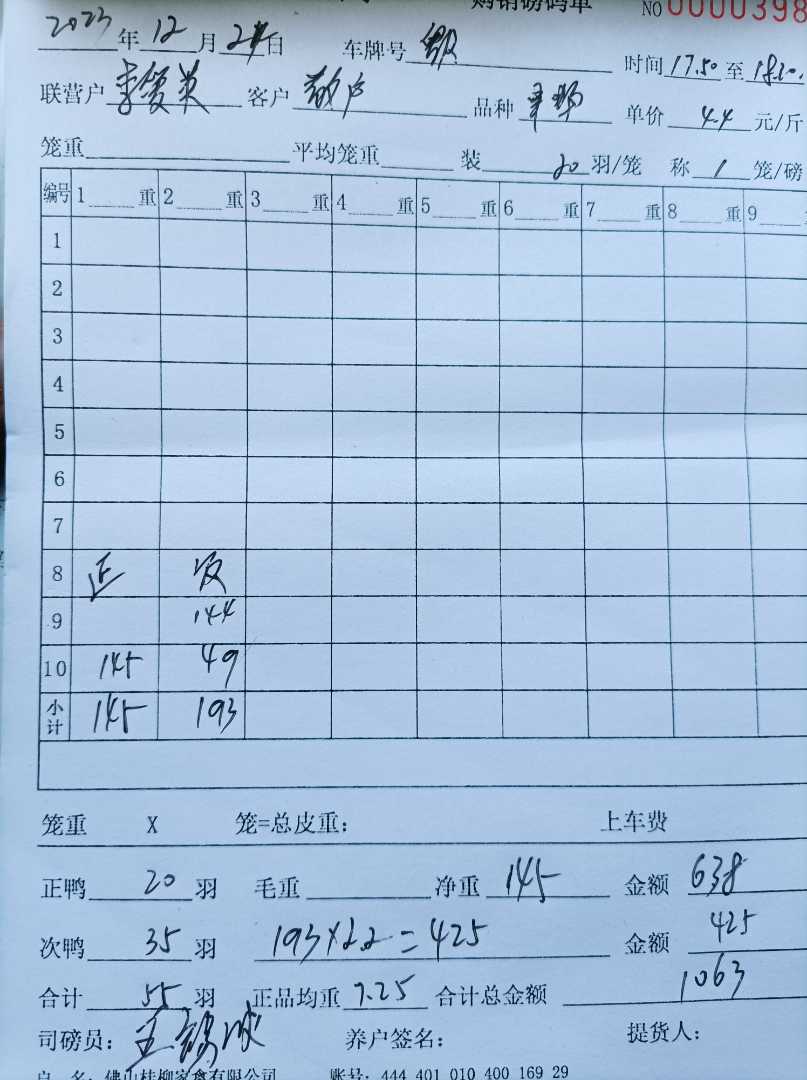 购销磅码单 NO 0000398
2023年12月24日 车牌号 时间17.50至18.10.
联营户 李 英 客户 散户 品种 单价 4.4 元/斤
笼重 平均笼重 装 20 羽/笼 称 1 笼/磅
编号 1 重 2 重 3 重 4 重 5 重 6 重 7 重 8 重 9
1
2
3
4
5
6
7
8 正 次
9 144
10 145 49
小计 145 193
笼重 X 笼=总皮重： 上车费
正鸭 20 羽 毛重 净重 145 金额 638
次鸭 35 羽 193×2.2=425 金额 425
合计 55 羽 正品均重 7.25 合计总金额 1063
司磅员： 王 养户签名： 提货人：
户 名：佛山桂柳家禽有限公司 账号：444 401 010 400 169 29